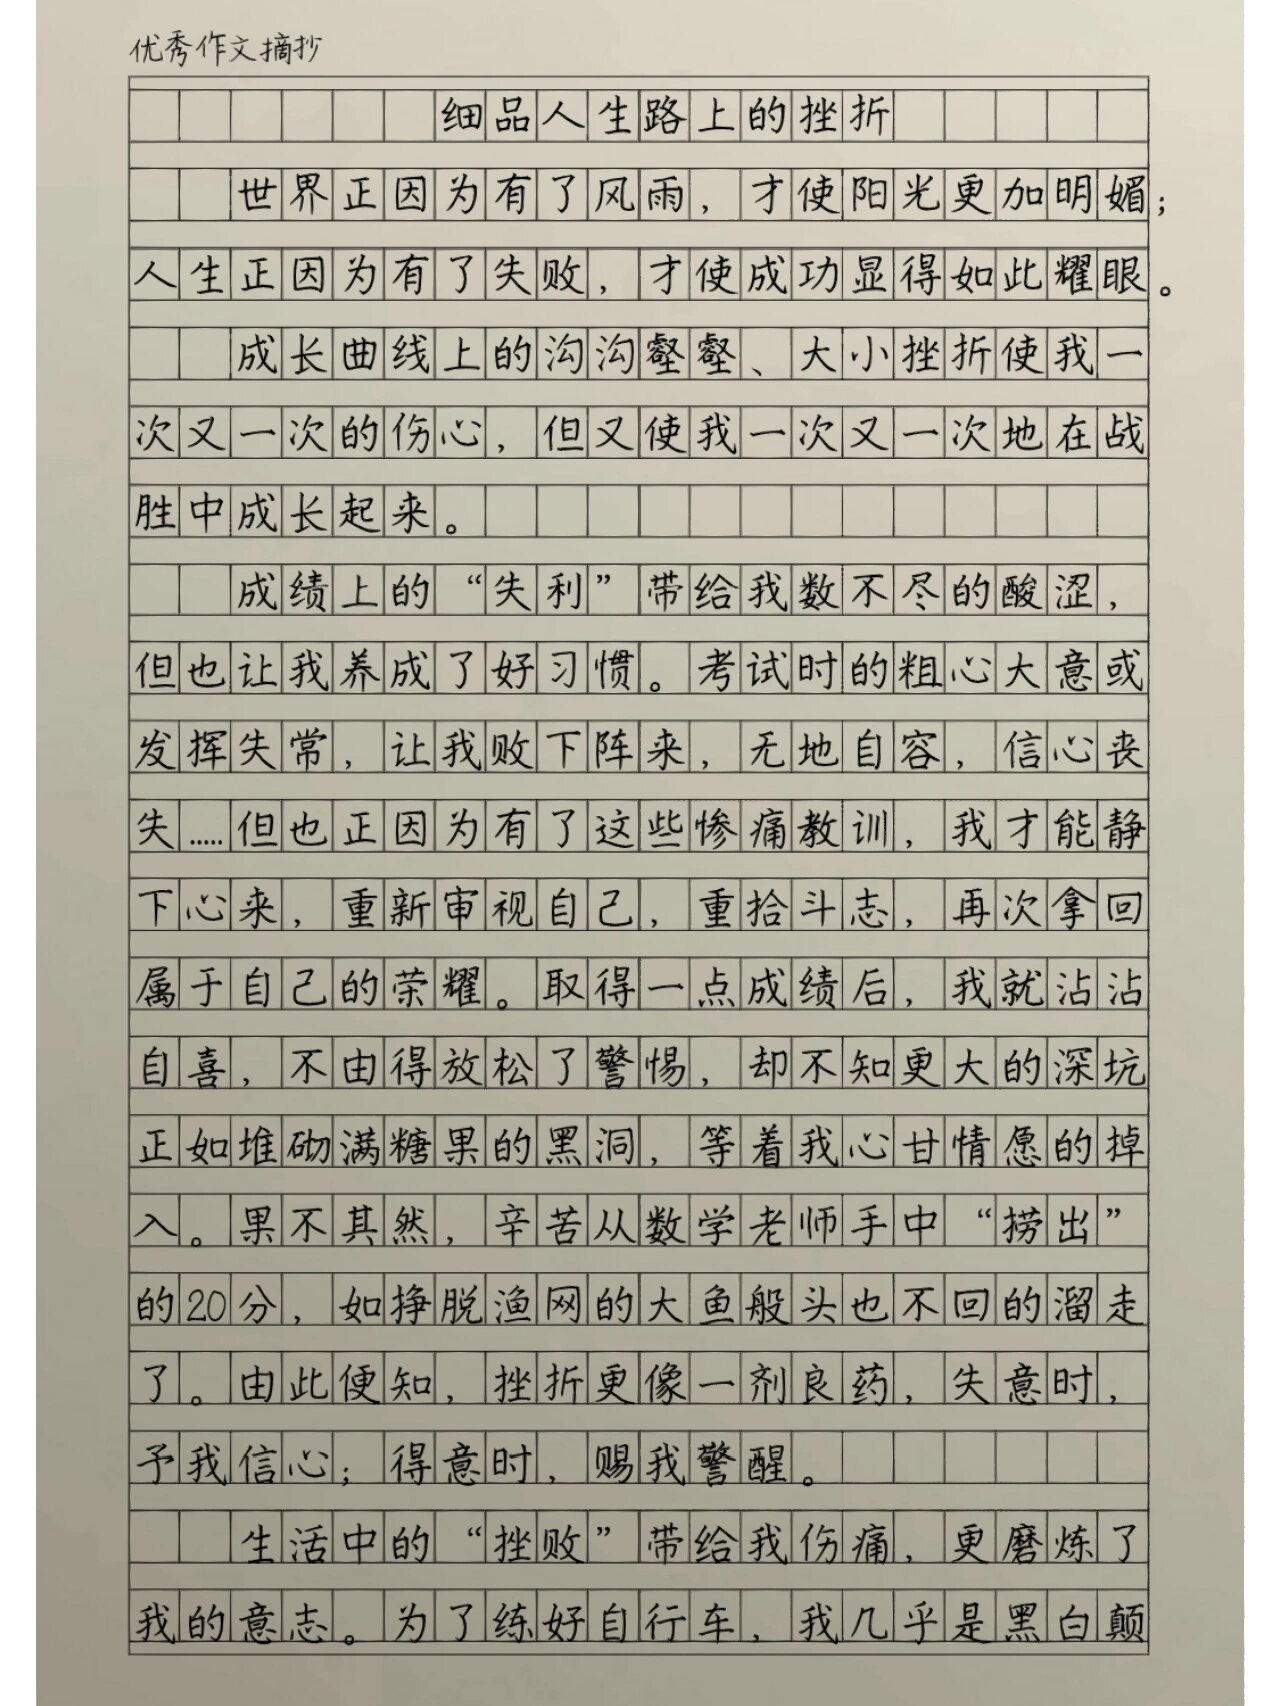 优秀作文摘抄
细品人生路上的挫折
世界正因为有了风雨，才使阳光更加明媚；
人生正因为有了失败，才使成功显得如此耀眼。
成长曲线上的沟沟壑壑、大小挫折使我一
次又一次的伤心，但又使我一次又一次地在战
胜中成长起来。
成绩上的“失利”带给我数不尽的酸涩，
但也让我养成了好习惯。考试时的粗心大意或
发挥失常，让我败下阵来，无地自容，信心丧
失……但也正因为有了这些惨痛教训，我才能静
下心来，重新审视自己，重拾斗志，再次拿回
属于自己的荣耀。取得一点成绩后，我就沾沾
自喜，不由得放松了警惕，却不知更大的深坑
正如堆砌满糖果的黑洞，等着我心甘情愿的掉
入。果不其然，辛苦从数学老师手中“捞出”
的20分，如挣脱渔网的大鱼般头也不回的溜走
了。由此便知，挫折更像一剂良药，失意时，
予我信心；得意时，赐我警醒。
生活中的“挫败”带给我伤痛，更磨炼了
我的意志。为了练好自行车，我几乎是黑白颠